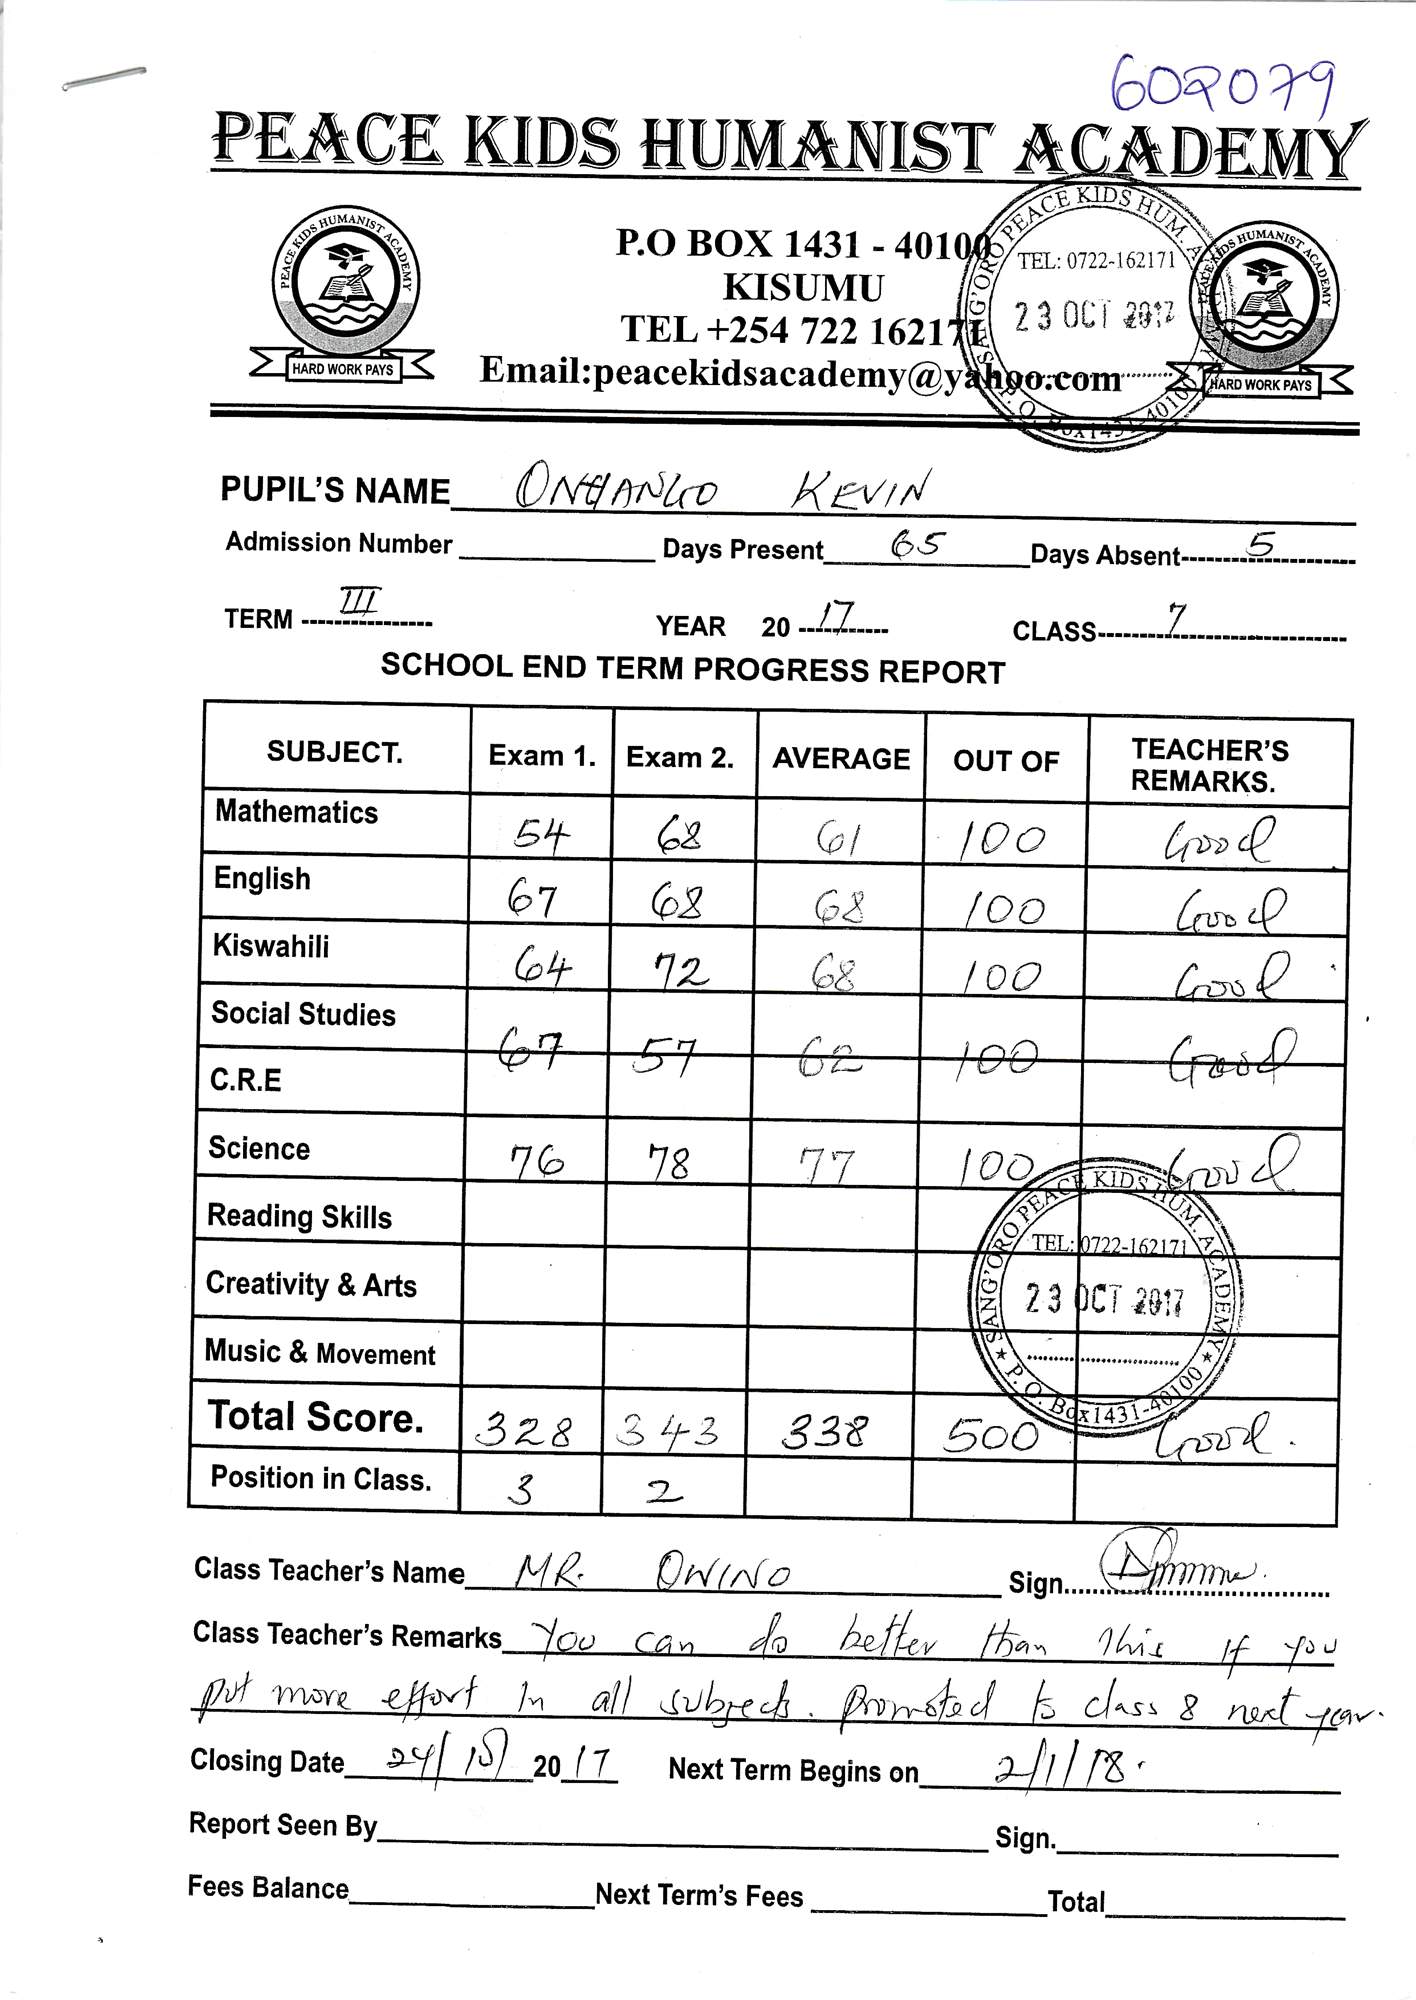 602079
PEACE KIDS HUMANIST ACADEMY
PEACE KIDS HUMANIST ACADEMY
HARD WORK PAYS
P.O BOX 1431 - 40100
KISUMU
TEL +254 722 162171
Email:peacekidsacademy@yahoo.com
SANG'ORO PEACE KIDS HUM. ACADEMY
TEL: 0722-162171
23 OCT 2017
P. O. Box 1431-40100
PEACE KIDS HUMANIST ACADEMY
HARD WORK PAYS
PUPIL'S NAME ONYANGO KEVIN
Admission Number Days Present 65 Days Absent 5
TERM III YEAR 20 17 CLASS 7
SCHOOL END TERM PROGRESS REPORT
SUBJECT. Exam 1. Exam 2. AVERAGE OUT OF TEACHER'S REMARKS.
Mathematics 54 68 61 100 Good
English 67 68 68 100 Good
Kiswahili 64 72 68 100 Good
Social Studies
67 57 62 100 Good
C.R.E
Science 76 78 77 100 Good
Reading Skills
Creativity & Arts
Music & Movement
SANG'ORO PEACE KIDS HUM. ACADEMY
TEL: 0722-162171
23 OCT 2017
P. O. Box1431-40100
Total Score. 328 343 338 500 Good.
Position in Class. 3 2
Class Teacher's Name MR. OWINO Sign.
Class Teacher's Remarks You can do better than this if you
put more effort in all subjects. promoted to class 8 next year.
Closing Date 2017 Next Term Begins on 2/1/18.
Report Seen By Sign.
Fees Balance Next Term's Fees Total